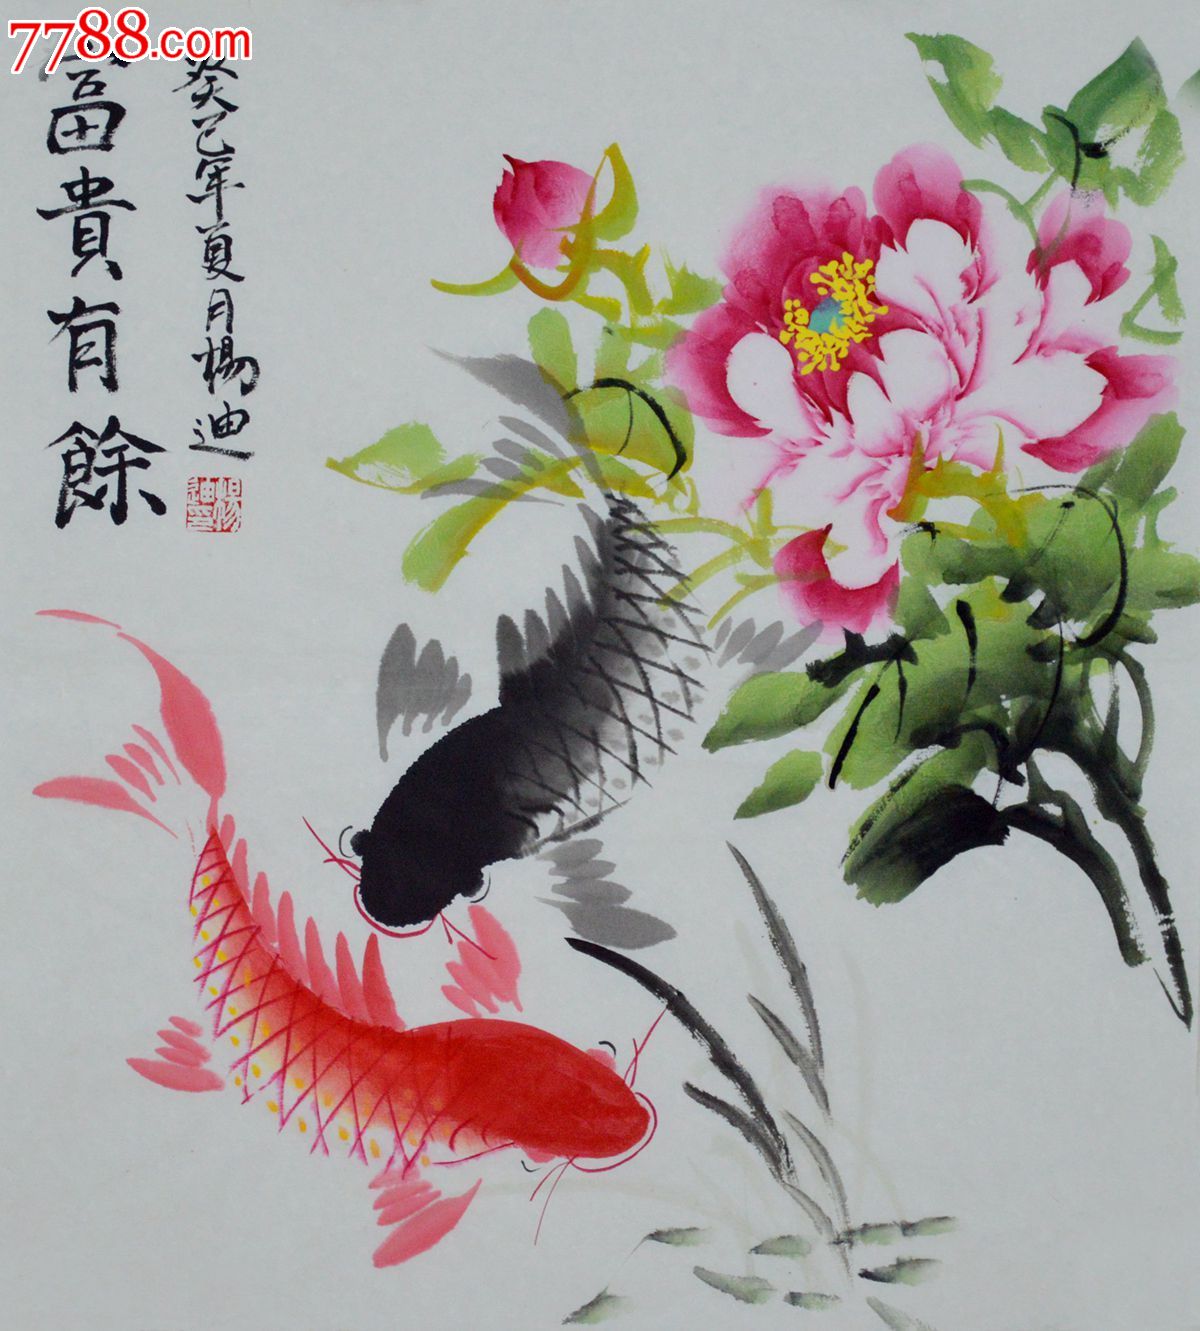 7788.com
富貴有餘
癸巳年夏月楊迪